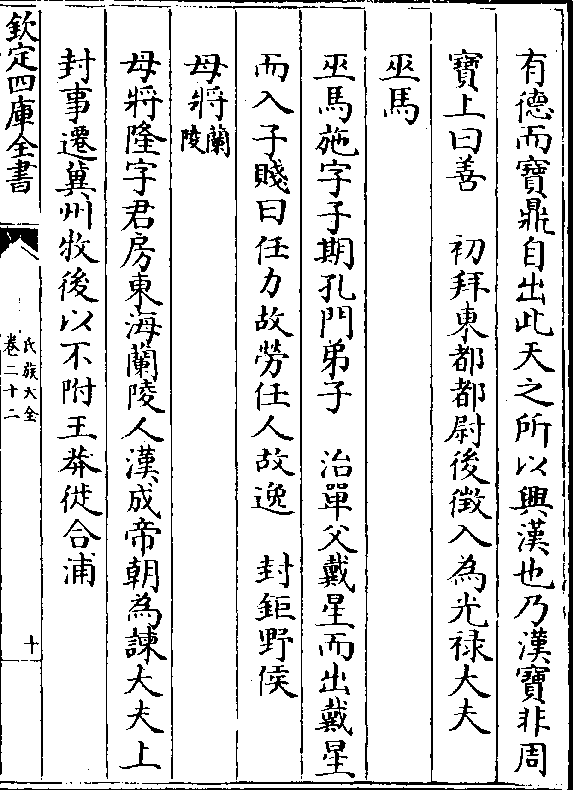 有德而寶鼎自出此天之所以興漢也乃漢寶非周
寶上曰善　初拜東都都尉後徵入為光禄大夫
巫馬
巫馬施字子期孔門弟子　治單父戴星而出戴星
而入子賤曰任力故勞任人故逸　封鉅野侯
母將蘭陵
母將隆字君房東海蘭陵人漢成帝朝為諫大夫上
封事遷冀州牧後以不附王莽徙合浦
欽定四庫全書
氏族大全
卷二十二
十